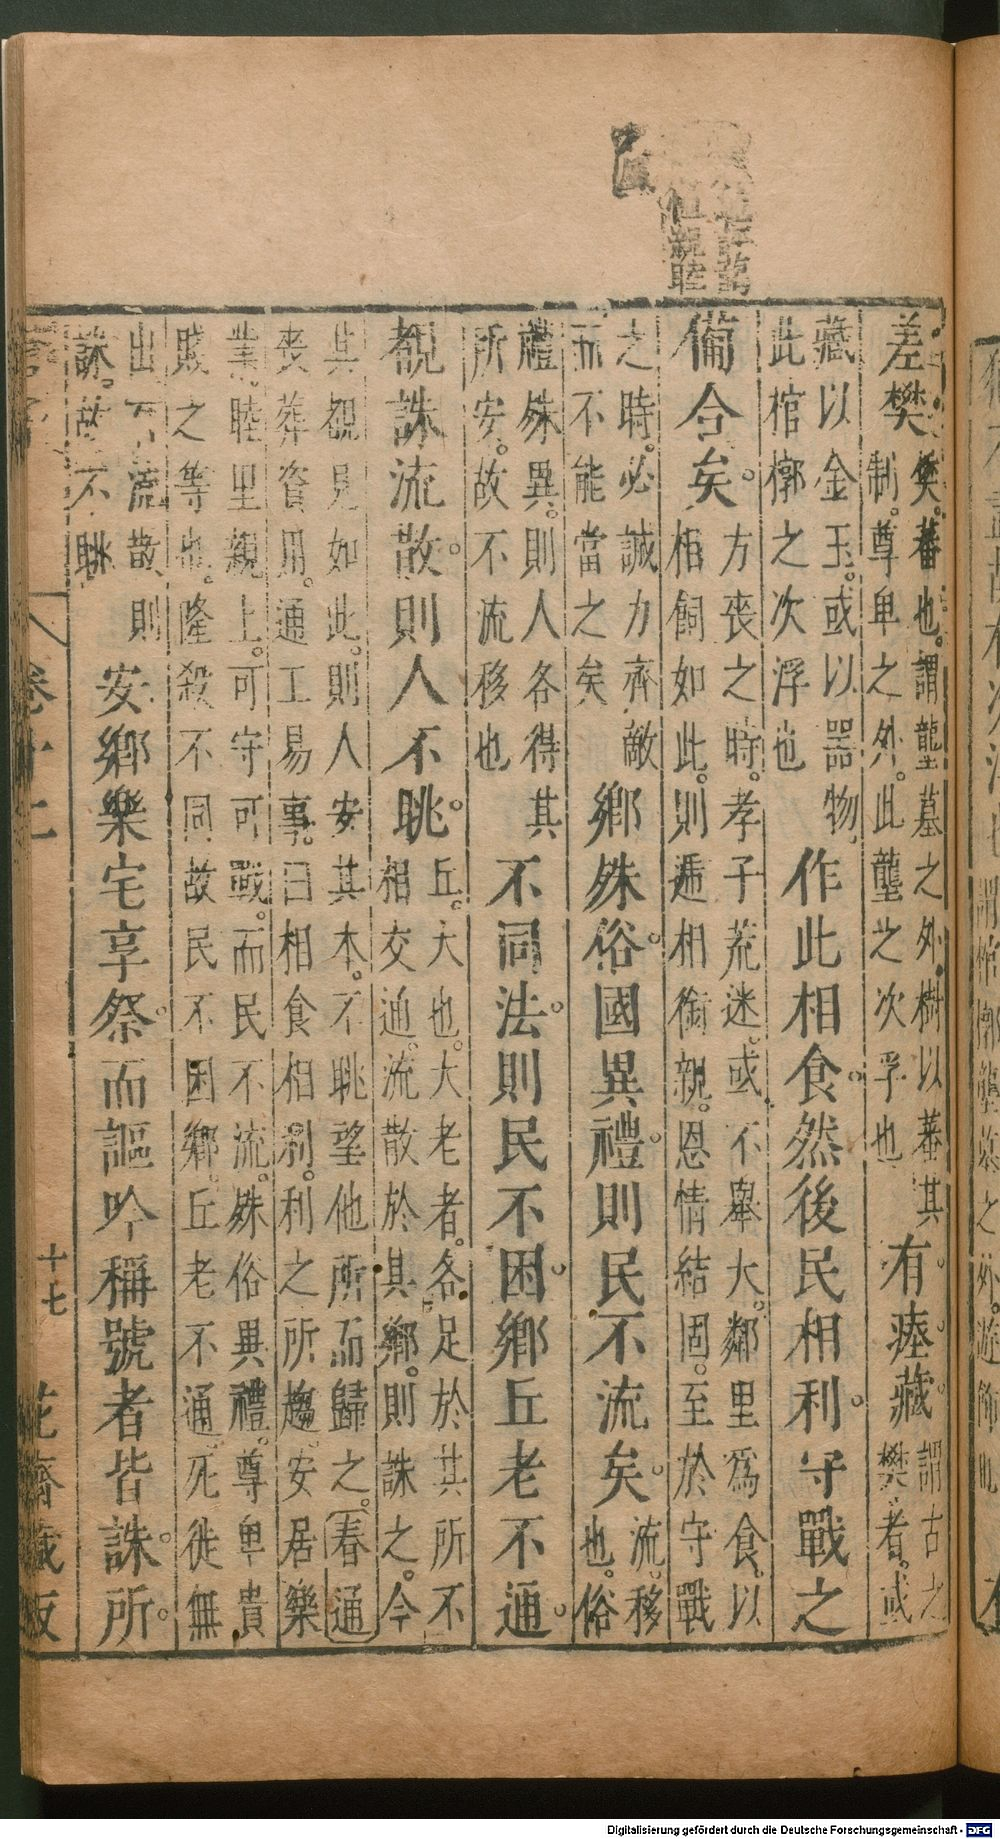 差樊樊。蕃也。謂壟墓之外。樹以蕃其
制。尊卑之外。此壟之次孚也
有瘞藏謂古之
樊者。或
藏以金玉。或以器物
此棺槨之次浮也
作此相食。然後民相利。守戰之
備合矣。方喪之時。孝子荒迷。或不舉大。鄰里爲食。以
相飼如此。則遞相銜親。恩情結固。至於守戰
之時。必誠力齊敵
而不能當之矣
鄉殊俗。國異禮。則民不流矣。流移
也。俗
禮殊異。則人各得其
所安。故不流移也
不同法。則民不困。鄉丘老不通。
覩誅流散。則人不眺。丘。大也。大老者。各足於其所不
相交通。流散於其鄉。則誅之。今
其覩見如此。則人安其本。不眺望他所而歸之。春通
喪葬資用。通工易事。曰相食相利。利之所趨。安居樂
業。睦里親上。可守可戰。而民不流。殊俗異禮。尊卑貴
賤之等也。隆殺不同故民不困鄉。丘老不通。死徙無
出而流散則
誅。故不眺
安鄉樂宅享祭。而謳吟稱號者皆誅。所
卷十二
十七
花齋藏板
Digitalisierung gefördert durch die Deutsche Forschungsgemeinschaft - DFG